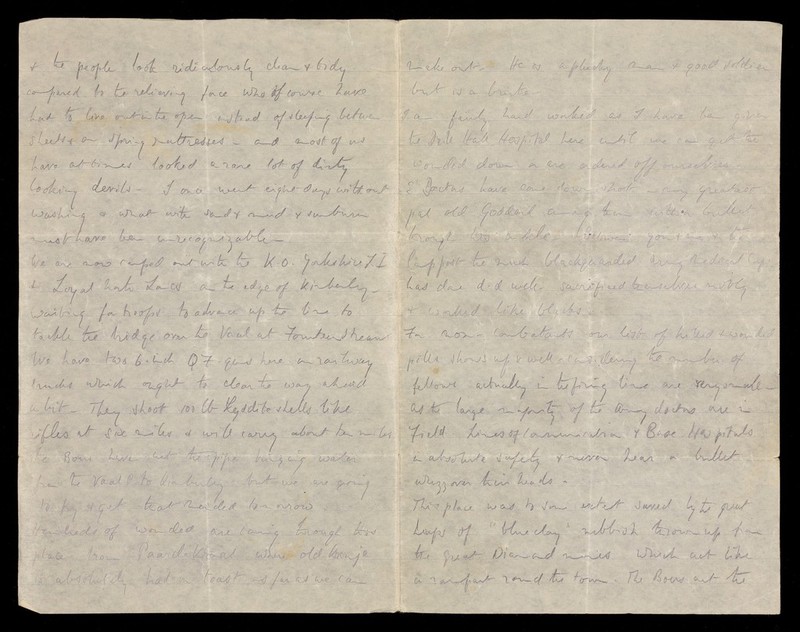 & the people look ridiculously clean & tidy
compared to the relieving force who of course have
had to live out in the open instead of sleeping between
sheets on spring mattresses - and most of us
have at times looked a rare lot of dirty
looking devils - I once went eight days without
washing & what with sand & mud & sunburn
must have been unrecognizable -
We are now camped out with the K.O. Yorkshire L I
& Loyal North Lancs on the edge of Kimberley -
waiting for troops to advance up the line to
tackle the bridge over the Vaal at Fourteen Streams
We have two 6 inch Q F guns here on railway
trucks which ought to clear the way ahead
a bit - They shoot 100 lb Lyddite shells like
rifles at six miles & will carry about ten miles
The Boers have cut the pipe bringing water
from the Vaal to Kimberley but we are going
to try & get that mended tomorrow
Hundreds of wounded are coming through this
place from Paardeberg where old Cronje
is absolutely hot toast as far as we can
make out - He is a plucky man & good soldier
but is a brute
I am fairly hard worked as I have been given
the Drill Hall Hospital here until we can get the
wounded down or are ordered off ourselves
2 Doctors have come down shot
old Goddard among them
brought
support the much blackguarded Army Medical Corps
has done did well sacrificed themselves nobly
& worked like blacks -
For non-combatants our list of killed & wounded
pills shows up well considering the number of
fellows actually in the firing line are very small -
as the large majority of the Army doctors are in
Field Lines of Communication & Base Hospitals
in absolute safety & never hear a bullet
whizz over their heads -
This place was to some extent saved by the great
heaps of "blue clay" rubbish thrown up from
the great Diamond mines which act like
a rampart round the town - The Boers cut the